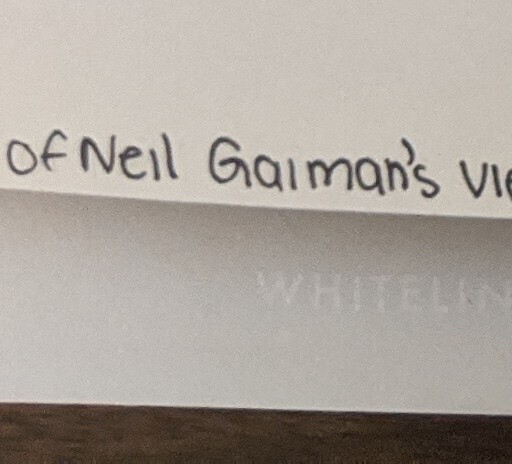 of Neil Gaiman's vie
WHITELIN